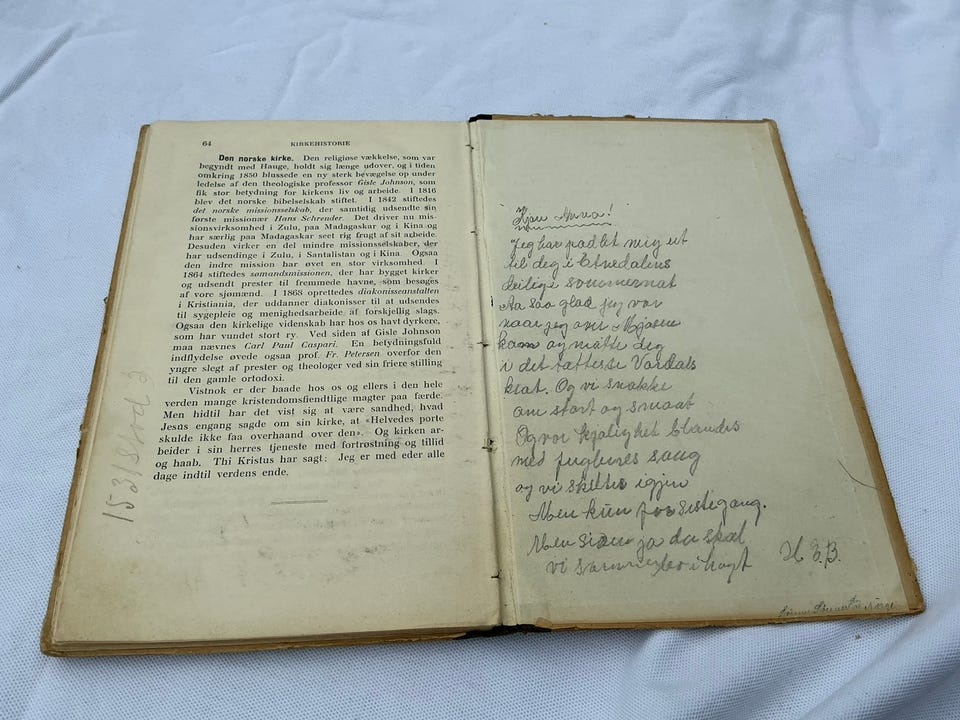 64
KIRKEHISTORIE
Den norske kirke. Den religiøse vækkelse, som var
begyndt med Hauge, holdt sig længe utover, og i tiden
omkring 1850 blussede en ny sterk bevægelse op under
ledelse av den theologiske professor Gisle Johnson, som
fik stor betydning for kirkens liv og arbeide. I 1816
blev det norske bibelselskab stiftet. I 1842 stiftedes
det norske missionsselskab, der samtidig utsendte sin
første missionær Hans Schreuder. Det driver nu mis-
sionsvirksomhed i Zulu, paa Madagaskar og i Kina og
har særlig paa Madagaskar seet rig frugt af sit arbeide.
Desuden virker en del mindre missionsselskaber, der
har utsendinge i Zulu, i Santalistan og i Kina. Ogsaa
den indre mission har øvet en stor virksomhed. I
1864 stiftedes sømandsmissionen, der har bygget kirker
og utsendt prester til fremmede havne, som besøges
af vore sjømænd. I 1868 oprettedes diakonisseanstalten
i Kristiania, der uddanner diakonisser til at utsendes
til sygepleie og menighedsarbeide af forskjellig slags.
Ogsaa den kirkelige videnskab har hos os havt dyrkere,
som har vundet stort ry. Ved siden af Gisle Johnson
maa nævnes Carl Paul Caspari. En betydningsfuld
indflydelse øvede ogsaa prof. Fr. Petersen overfor den
yngre slegt af prester og theologer ved sin friere stilling
til den gamle ortodoxi.
Vistnok er der baade hos os og ellers i den hele
verden mange kristendomsfiendtlige magter paa færde.
Men hidtil har det vist sig at være sandhed, hvad
Jesus engang sagde om sin kirke, at «Helvedes porte
skulde ikke faa overhaand over den». Og kirken ar-
beider i sin herres tjeneste med fortrøstning og tillid
og haab. Thi Kristus har sagt: Jeg er med eder alle
dage indtil verdens ende.
Kjære Anna!
Jeg har padlet mig ut
til deg i Etnedalens
deilige sommernat
Aa saa glad jeg var
naar jeg over Mjøsen
kom og møtte deg
i det tætteste Vardals
krat. Og vi snakke
om stort og smaat
Og vor kjælighet blandes
med fuglenes sang
og vi skiltes igjen
Men kun for sistegang.
Men siden ja da skal
vi sammen bo i
H. E. B.